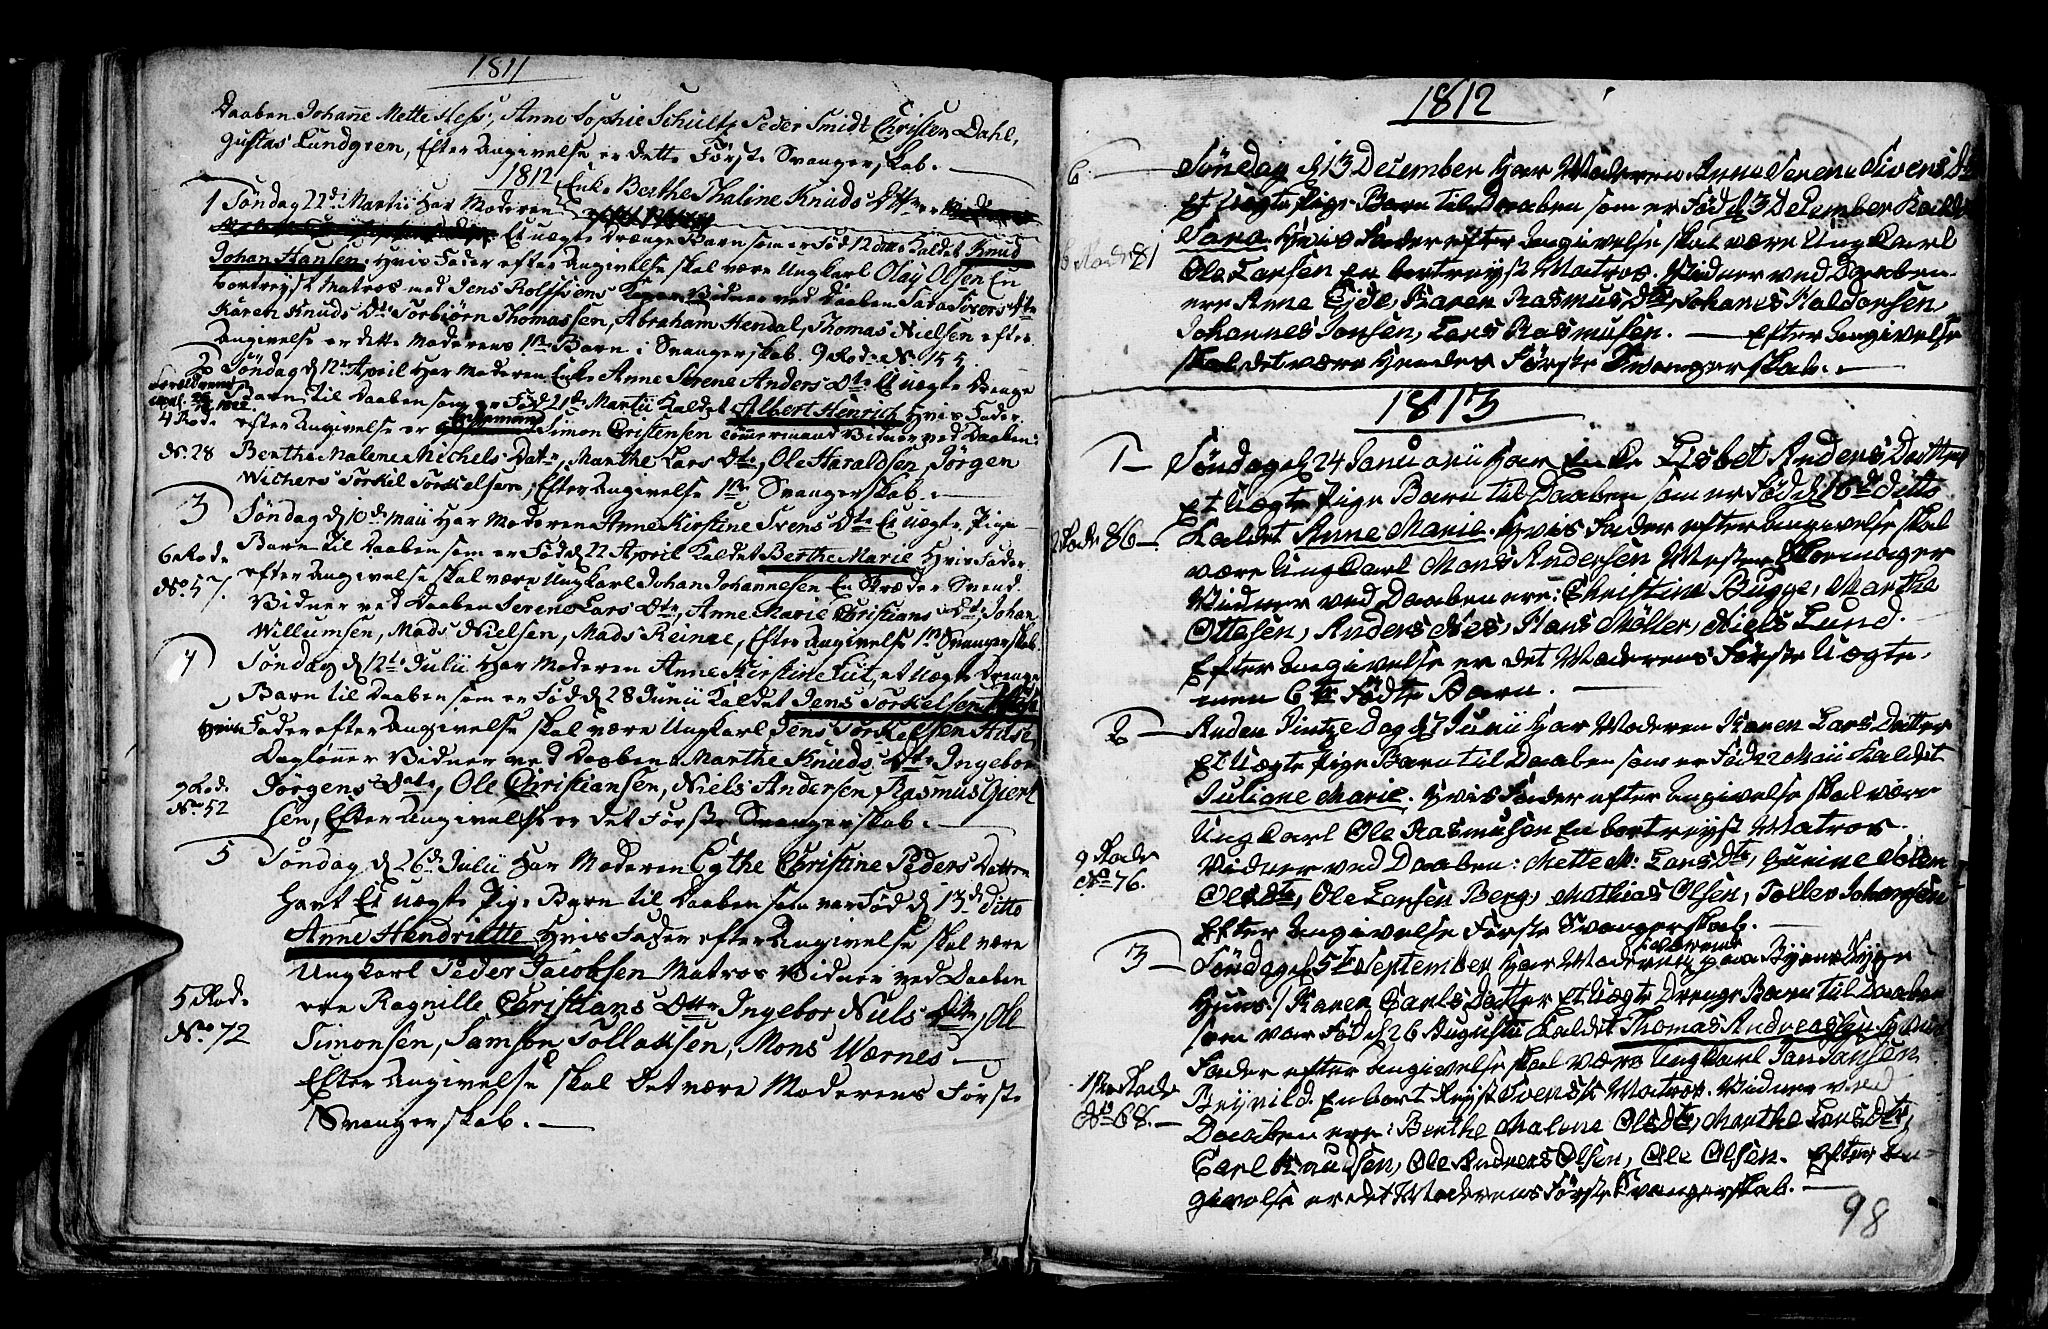 1811
Daaben Johanne Mette Hess, Anne Sophie Schultz Peder Smidt Christen Dahl,
Gustas Lundgren, Efter Angivelse er dette Første Svangerskab.
1812
1 Søndag 22de Martii Har Moderen Enke Berthe Thaline Knuds Dttr
Et uægte Drænge Barn som er Fød 12 ditto Kaldet Knud
Johan Hansen. Hvis Fader efter Angivelse skal være Ungkarl Olay Olsen En
bortreyst Matros med Jens Rolfsens Vidner ved Daaben Sara Sivers Dtr
Karen Knuds Dtr Torbiørn Thomassen, Abraham Hendal, Thomas Nielsen efter
Angivelse er dette Moderens 1te Barn i Svangerskab. 9 Rode No 155.
2 Søndag d 12te April Har Moderen Enke Anne Serene Anders Dtr Et uægte Drenge
Barn til Daaben som er Fød 21de Martii Kaldet Albert Henrich Hvis Fader
4 Rode efter Angivelse er Simon Christensen Tømmermand Vidner ved Daaben:
No. 28 Berthe Malene Michels Datr, Marthe Lars Dtr, Ole Haraldsen, Jørgen
Wichers Torkil Torkelsen, Efter Angivelse 1te Svangerskab.
3 Søndag d 10de Maii Har Moderen Anne Kirstine Svens Dtr Et uægte Pige
6 Rode Barn til Daaben som er Fød d 22 April Kaldet Berthe Marie Hvis Fader
No. 57. efter Angivelse skal være Ungkarl Johan Johannesen En Skræder Svend.
Vidner ved Daaben Serene Lars Dtr, Anne Marie Christians Dtr Johan
Willumsen, Mads Nielsen, Mads Reinæ, Efter Angivelse 1te Svangerskab.
4 Søndag d 12te Julii Har Moderen Anne Kirstine Tut, et Uægte Drenge
Barn til Daaben som er Fød d 28 Junii Kaldet Jens Torkelsen
Hvis Fader efter Angivelse skal være Ungkarl Jens Torkelsen Aase
Dagløner Vidner ved Daaben Marthe Knuds Dtr Ingebor
9 Rode Jørgens Datr, Ole Christiansen, Niels Andersen, Rasmus Giert
No 52 sen, Efter Angivelse er det Første Svangerskab.
5 Søndag d 26de Julii Har Moderen Cythe Christine Peders Dattr
Havt Et uægte Pige Barn til Daaben som var Fød d 13de Ditto
Anne Hendriette Hvis Fader efter Angivelse skal være
Ungkarl Peder Jacobsen Matros Vidner ved Daaben
5 Rode ere Ragnille Christians Dttr Ingebor Niels Dtr, Ole
No. 72 Simonsen, Samson Tollaksen, Mons Wærnes.
Efter Angivelse skal Det være Moderens Første
Svangerskab.
1812
6 Søndag d 13 December Har Moderen Anne Serene Sivers Dtr
Et Uægte Pige Barn til Daaben som er Fød d 3 December Kaldet
Sara Hvis Fader efter Angivelse skal være Ungkarl
Rode 81
Ole Larsen En bortreyst Matros. Vidner ved Daaben
ere Anne Eide, Karen Rasmus Dtr, Johanes Haldorsen,
Johannes Jonsen, Lars Rasmusen. Efter Angivelse
skal det være Hendes Første Svangerskab.
1813
1 Søndag d 24 Januarii Har Enke Lisbet Anders Datter
Et Uægte Pige Barn til Daaben som er Fød d 16de Ditto
Rode 86 Kaldet Anne Marie. Hvis Fader efter Angivelse skal
være Ungkarl Mons Andersen Mester Skomager
Vidner ved Daaben ere: Christine Bugge, Martha
Ottesen, Anders Næs, Hans Møller, Niels Lund.
Efter Angivelse er det Moderens Første Uægte,
men 6te Fødte Barn.
2 Anden Pintze Dag d 7 Junii Har Moderen Karen Lars Datter
Et Uægte Pige Barn til Daaben som er Fød 22 Maii Kaldet
Juliane Marie. Hvis Fader efter Angivelse skal være
Ungkarl Ole Rasmusen En bortreyst Matros.
9 Rode Vidner ved Daaben: Mette M: Lars Dtr, Gurine
No 76. Ols Dtr, Ole Larsen Berg, Mathias Olsen, Tolles Johansen
Efter Angivelse Første Svangerskab.
3 Søndag d 5te September Har Moderen paa Byens Syge
Huus Karen Carls Datter Et Uægte Drenge Barn til Daaben
som var Fød d 26 Augusti Kaldet Thomas Andreas Hvis
Fader efter Angivelse skal være Ungkarl Jan Jansen
1ste Rode
No 68. Beyvild En bort Reyst Svensk Matros. Vidner ved
Daaben ere: Berthe Malene Ols Dtr, Marthe Lars Dtr,
Carl Knudsen, Ole Andreas Olsen, Ole Olsen. Efter An-
givelse er det Moderens Første Svangerskab.
98